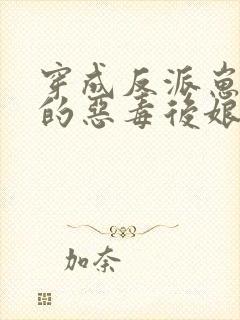 穿成反派崽崽
的惡毒後娘
加奈